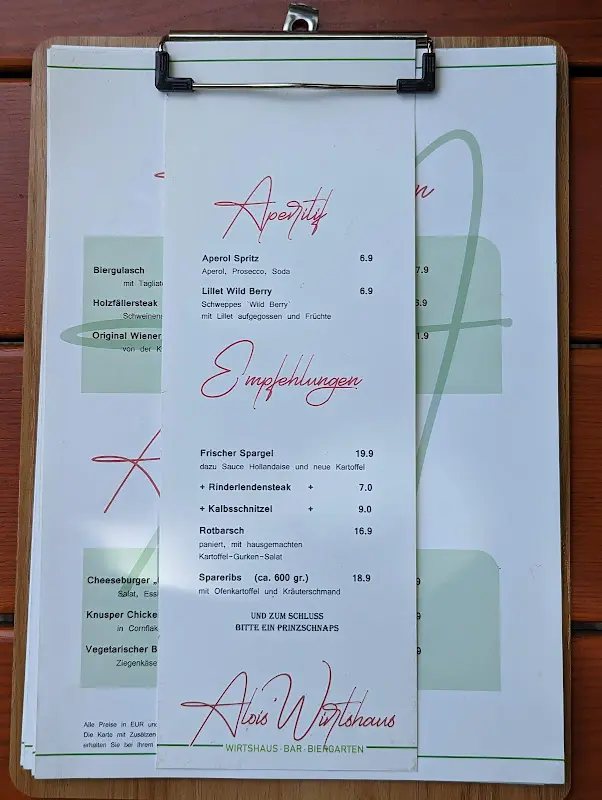 Aperitif
Aperol Spritz 6.9
Aperol, Prosecco, Soda
Lillet Wild Berry 6.9
Schweppes 'Wild Berry'
mit Lillet aufgegossen und Früchte
Empfehlungen
Frischer Spargel 19.9
dazu Sauce Hollandaise und neue Kartoffel
+ Rinderlendensteak + 7.0
+ Kalbsschnitzel + 9.0
Rotbarsch 16.9
paniert, mit hausgemachten
Kartoffel-Gurken-Salat
Spareribs (ca. 600 gr.) 18.9
mit Ofenkartoffel und Kräuterschmand
UND ZUM SCHLUSS
BITTE EIN PRINZSCHNAPS
Alois' Wirtshaus
WIRTSHAUS · BAR · BIERGARTEN
Biergulasch
mit
Holzfällersteak
Original Wiener
von der
Cheeseburger
Salat,
Knusper
in
Vegetarischer
Alle Preise in EUR
Die Karte mit
erhalten Sie bei Ihrem